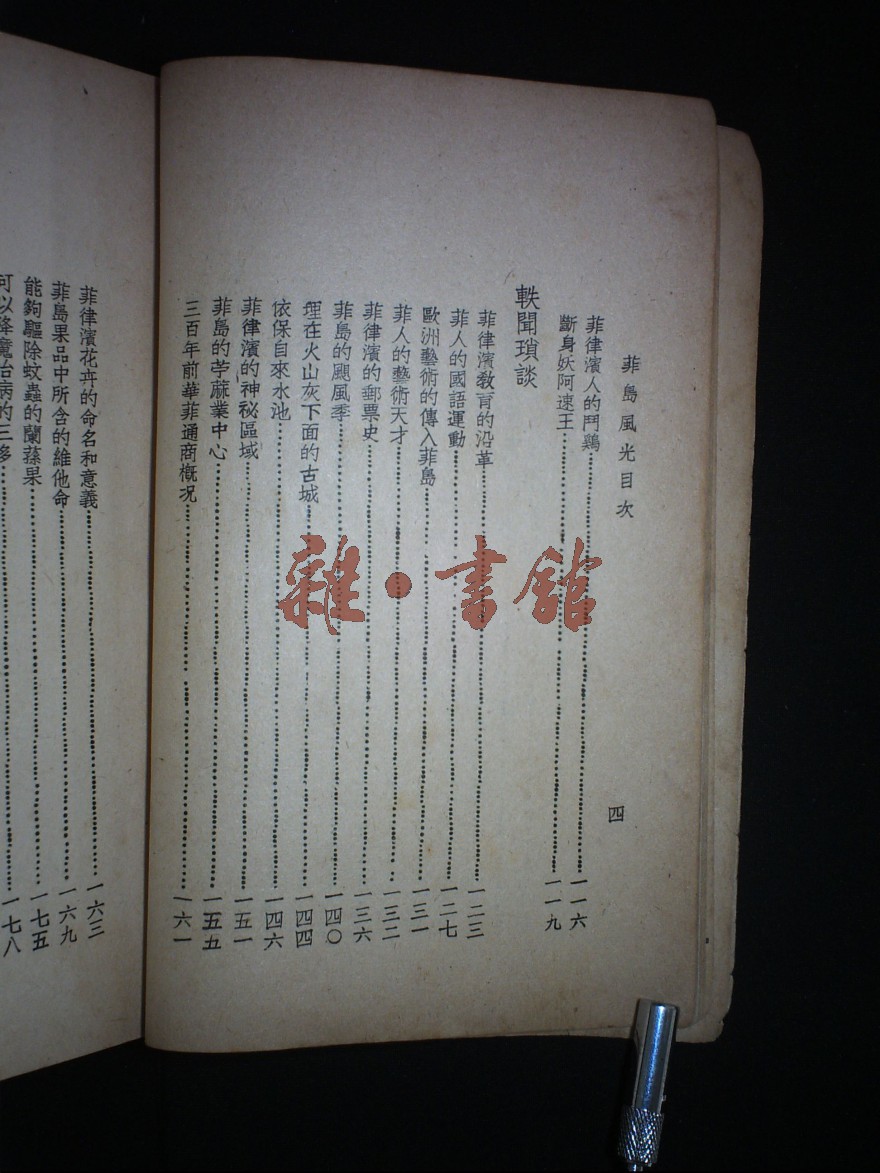 菲島風光目次
四
菲律濱人的鬥鷄 一一六
斷身妖阿速王 一一九
軼聞瑣談
菲律濱敎育的沿革 一二三
菲人的國語運動 一二七
歐洲藝術的傳入菲島 一三一
菲人的藝術天才 一三二
菲律濱的郵票史 一三六
菲島的颶風季 一四〇
埋在火山灰下面的古城 一四四
依保自來水池 一四六
菲律濱的神秘區域 一五一
菲島的苧蔴業中心 一五五
三百年前華菲通商槪況 一六一
菲律濱花卉的命名和意義 一六三
菲島果品中所含的維他命 一六九
能夠驅除蚊蟲的蘭蔴果 一七五
可以降魔治病的三 一七八
雜·書館